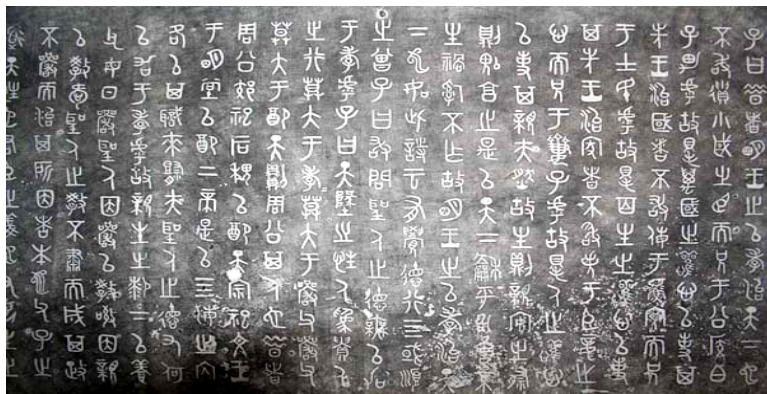 子曰昔者明王之以孝治天下也
不敢遺小國之臣而況于公侯伯
子男乎故得萬國之歡心以事其
先王治國者不敢侮于鰥寡而況
于士民乎故得百姓之歡心以事
其先君治家者不敢失于臣妾之
心而況于妻子乎故得人之歡心
以事其親夫然故生則親安之祭
則鬼享之是以天下和平災害不
生禍亂不作故明王之以孝治天
下也如此詩云有覺德行四國順
之曾子曰敢問聖人之德亡以加
于孝乎子曰天地之性人為貴人
之行莫大于孝孝莫大于嚴父嚴父
莫大于配天則周公其人也昔者
周公郊祀后稷以配天宗祀文王
于明堂以配上帝是以四海之內
各以其職來助祭夫聖人之德又何
以加于孝乎故親生之膝下以養
父母日嚴聖人因嚴以教敬因親
以教愛聖人之教不肅而成其政
不嚴而治其所因者本也父子之
道天性也君臣之義也父母生之